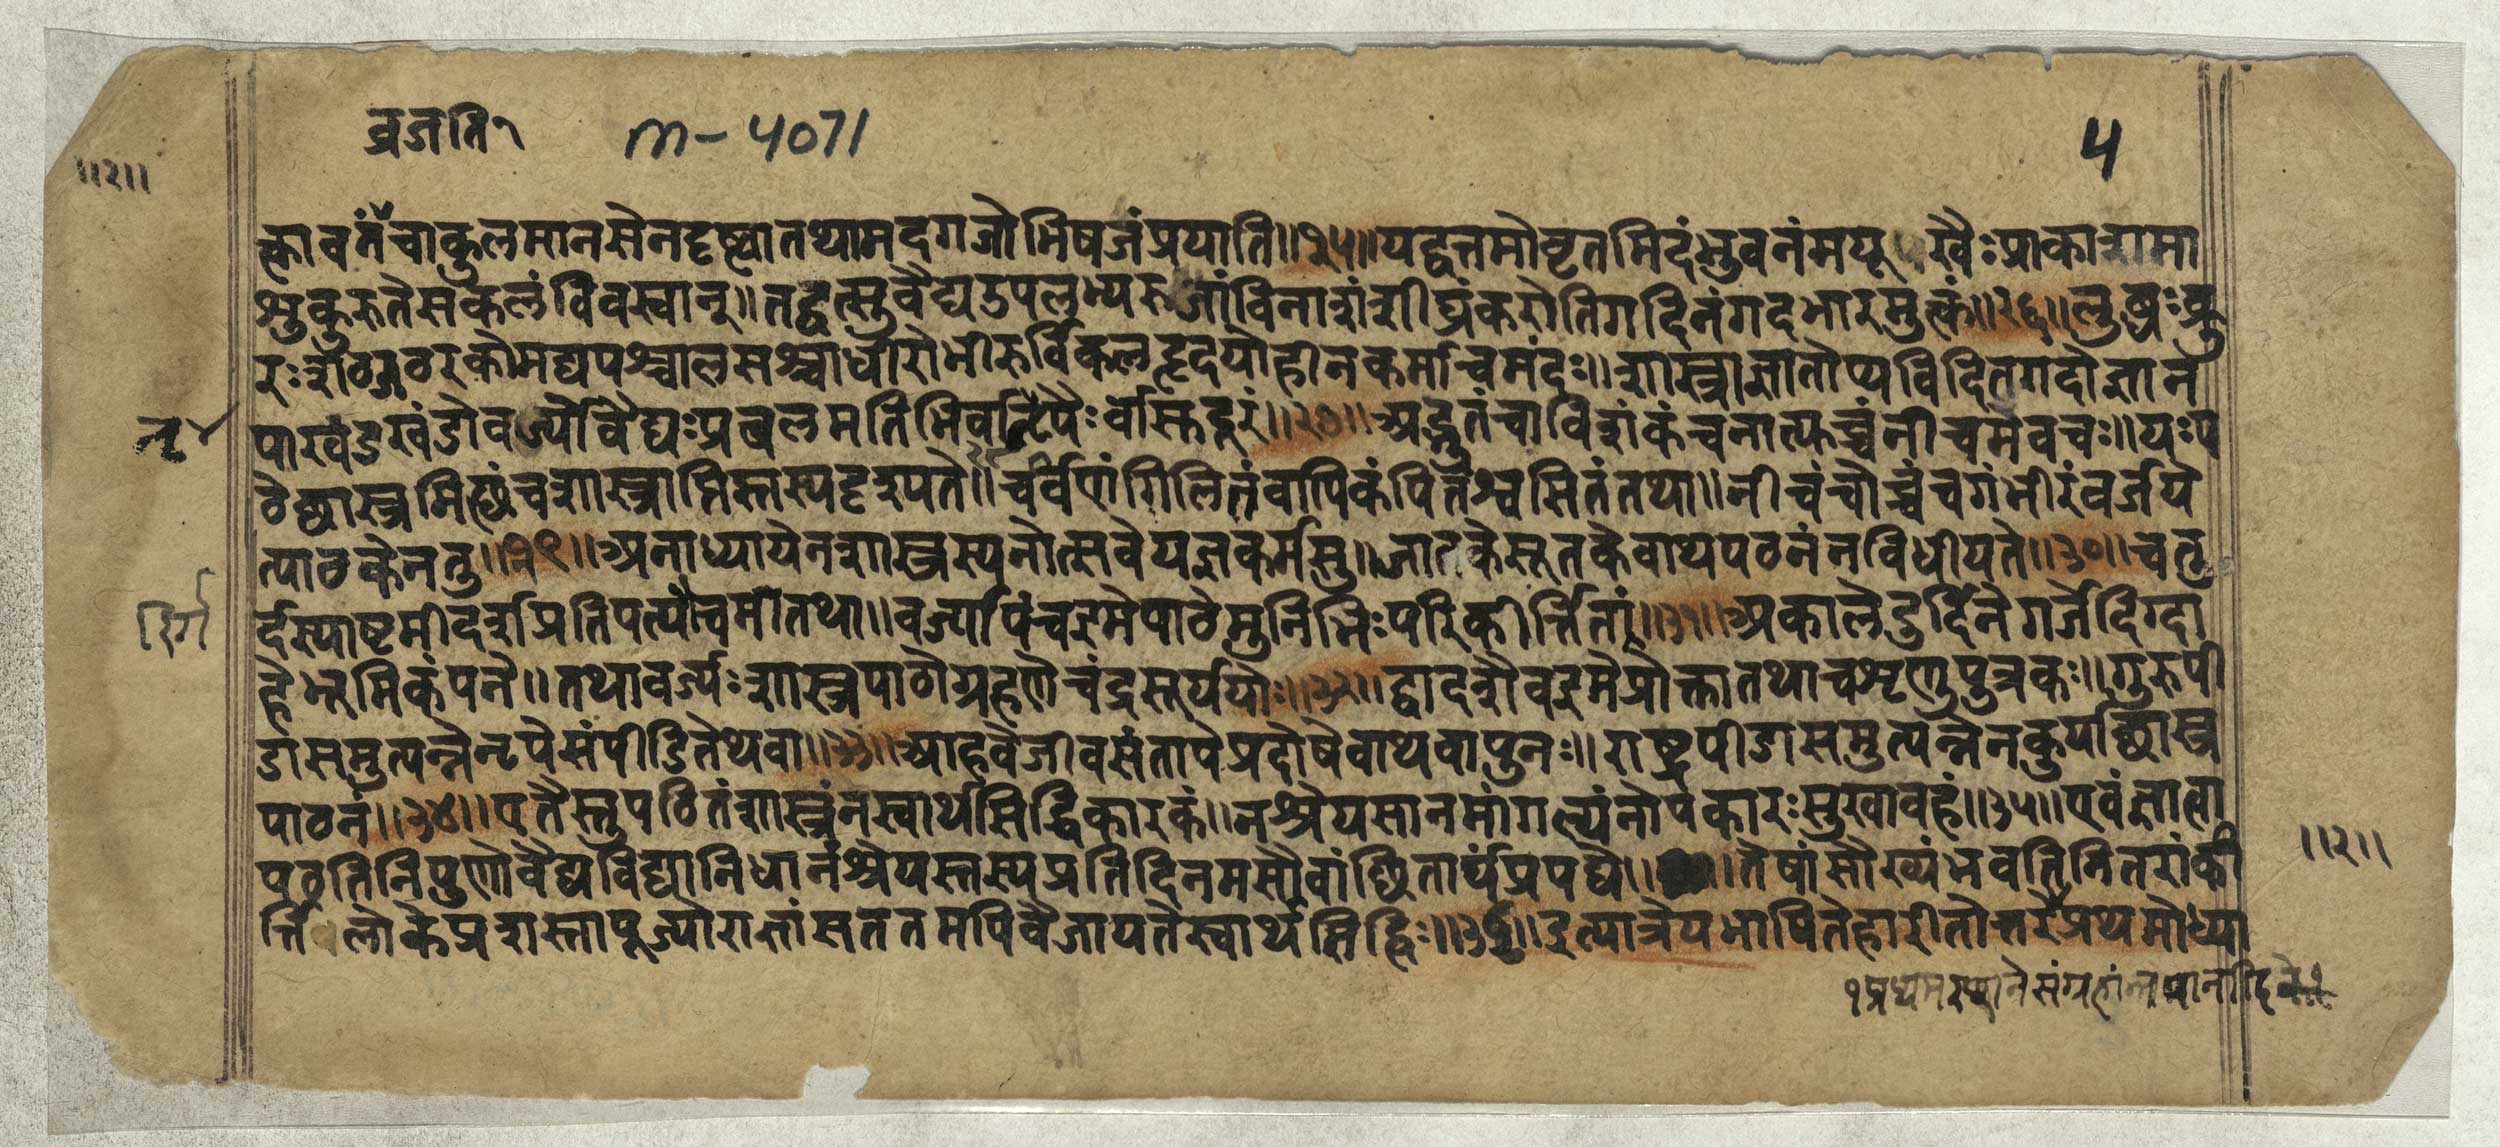 व्रजति१
m-4071
4
॥२॥
त्कावतंचाकुलमानसेनदृष्ट्वातथामदगजोभिषजंप्रयाति॥२५॥यद्वत्तमोवृतमिदंभुवनंमयूखैःप्राकारामा
श्रुकुरुतेसकलंविवस्वान्॥तद्वत्सुवैद्यउपलभ्यरुजांविनाशंशीघ्रंकरोतिगदिनंगदभारमुक्तं॥२६॥लुब्धःक्रु
रःशठजठरकोमद्यपश्चालसश्चाधीरोभीरुर्विकलहृदयोहीनकर्माचमंदः॥शास्त्राज्ञातोप्यविदितगदोज्ञाने
पाखंडखंडोवर्ज्योवैद्यःप्रबलमतिभिर्वर्स्तिदूरं॥२७॥अद्भुतंचाविशंकंचनात्युच्चंनीचमेवच॥यःप
ठेछास्त्रमिछंचशास्त्राप्तिस्तस्यदृश्यते॥चर्वणंगिलितंवापिकंपितंश्वसितंतथा॥नीचंचोच्चंचगंभीरंवर्जये
त्पाठकेनतु॥२९॥अनाध्यायेनशास्त्रस्यनोत्सवेयज्ञकर्मसु॥जातकेसूतकेवाथपठनंनविधीयते॥३०॥चतु
र्दस्याष्टमीदर्शप्रतिपत्पौचमीतथा॥वर्ज्यापंचइमेपाठेमुनिभिःपरिकीर्त्तिताः॥३१॥अकालेदुर्दिनेगर्जेदिग्दा
हेभूमिकंपने॥तथावर्ज्यःशास्त्रपाठोग्रहणेचंद्रसूर्ययोः॥३२॥द्वादशैवइमेप्रोक्तातथाचश्रृणुपुत्रकः॥गुरुपी
डासमुत्पन्नेनृपेसंपीडितेथवा॥३३॥आहवेजीवसंतापेप्रदोषेवाथवापुनः॥राष्ट्रपीडासमुत्पन्नेनकुर्याछास्त्र
पाठनं॥३४॥एतैस्तुपठितंशास्त्रंनस्वार्थसिद्धिकारकं॥नश्रेयसानमांगल्यंनोपकारःसुखावहं॥३५॥एवंज्ञात्वा
पठतिनिपुणोवैद्यविद्यानिधानंश्रेयस्तस्यप्रतिदिनमसौवांछितार्थंप्रपद्ये॥तेषांसौख्यंभवतिनितरांकी
र्त्तिलोकेप्रशस्तापूज्योराज्ञांसततमपिवैजायतेस्वार्थसिद्धिः॥३६॥इत्यात्रेयभाषितेहारीतोत्तरेप्रथमोध्या
॥२॥